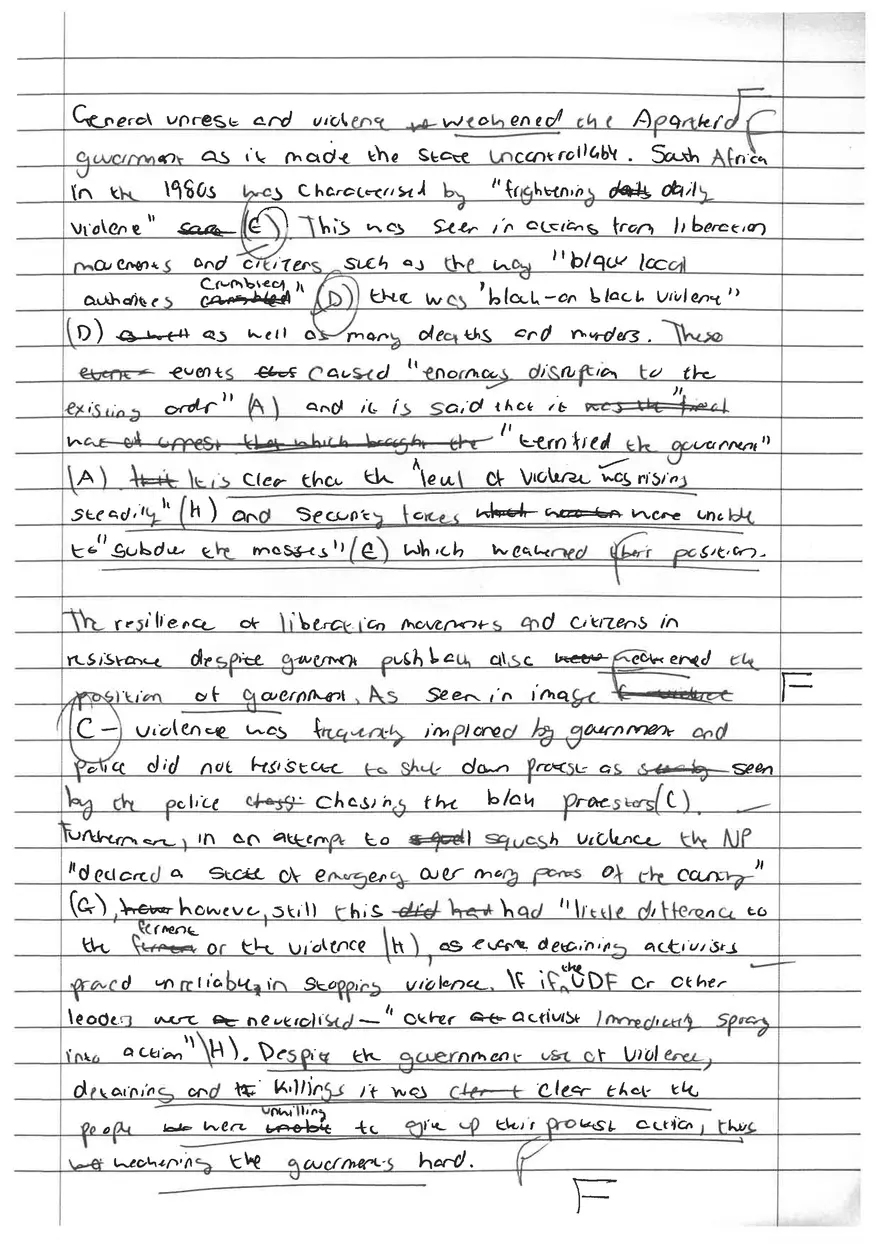 General unrest and violence weakened the Apartheid F
government as it made the state uncontrollable. South Africa
in the 1980s was characterised by "frightening daily
violene" (E). This was seen in actions from liberation
movements and citizens such as the way "black local
authorites crumbled" (D) there was "black-on black violene"
(D) as well as many deaths and murders. These
events caused "enormous disruption to the
existing ordr" (A) and it is said that it
"terrified the government"
(A) It is clear that the "level of violense was rising
steadily" (H) and security forces were unable
to "subdue the masses" (E) which weakened their position.
The resilience of liberation movements and citizens in
resistance despite government pushback also weakened the
position of government. As seen in image F
C- violence was frequently implored by government and
police did not hesistate to shut down protest as seen
by the police chasing the black protestors (C).
Furthermore, in an attempt to squash violence the NP
"declared a state of emergency over many parts of the country"
(G), however, still this had "little difference to
the ferment or the violence (H), as even detaining activists
proved unreliable in stopping violence. If if the UDF or other
leaders were neutralised - "other activist immediatly sprang
into action" (H). Despite the government use of violence,
detaining and killings it was clear that the
people were unwilling to give up their protest action, thus
weakening the governments hand.
F